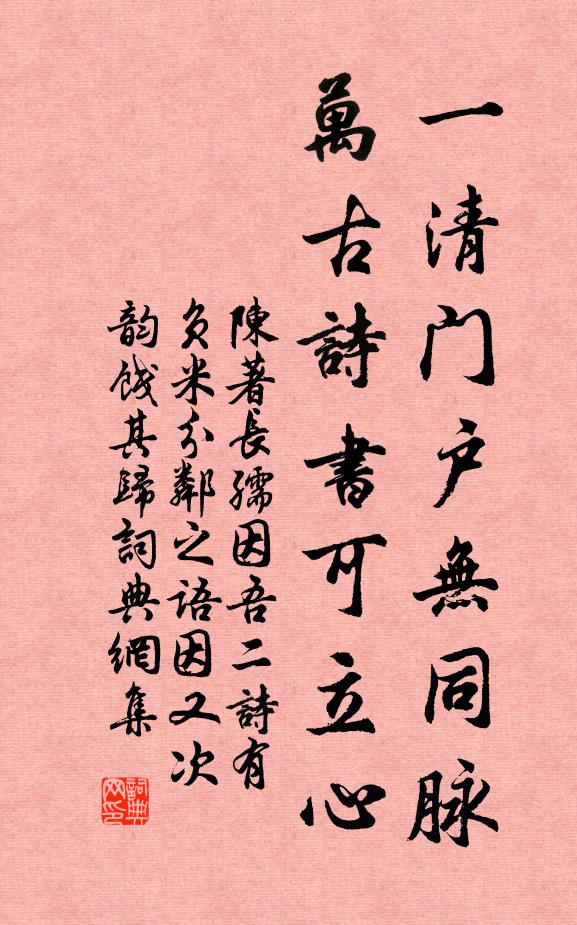 一清門戶無同脉
萬古詩書可立心
陳著長孺因吾二詩有
負米分鄰之语因又次
韵餞其歸詞典網集
詞典
网印